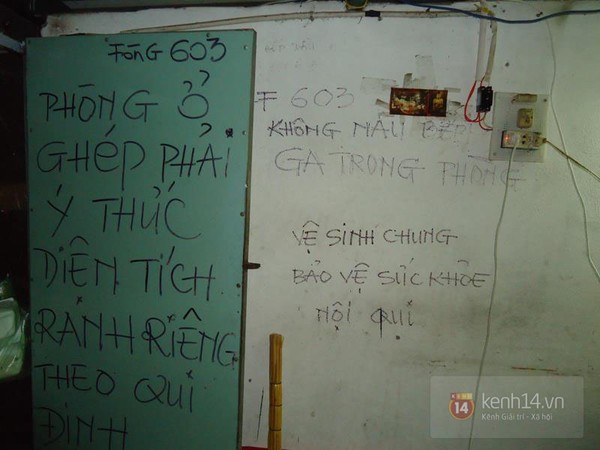 FòNG 603
PHÒNG Ở
GHÉP PHẢI
Ý THỨC
DIÊN TÍCH
RẢNH RIÊNG
THEO QUI
ĐINH
F 603
KHÔNG NẤU BẾP
GA TRONG PHÒNG
VỆ SINH CHUNG
BẢO VỆ SỨC KHỎE
NỘI QUI
14
kenh14.vn
Kênh Giải trí - Xã hội